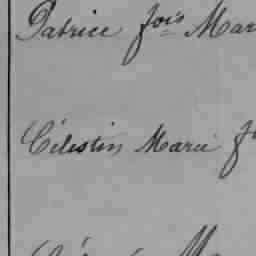 Patrice fois Mar
Célestin Marie f